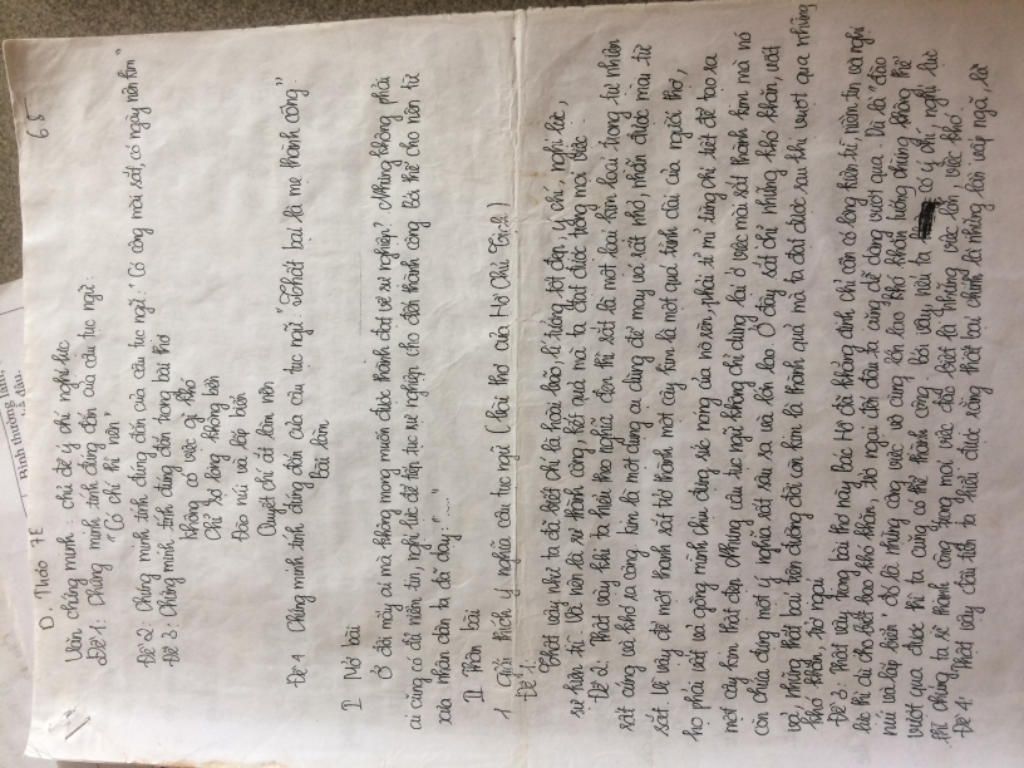 Bình thường lắm,
bỏ đâu.
D. Thảo 7E
65
Văn chứng minh: chủ đề ý chí nghị lực
Đề 1: Chứng minh tính đúng đắn của câu tục ngữ:
"Có chí thì nên"
Đề 2: Chứng minh tính đúng đắn của câu tục ngữ: "Có công mài sắt, có ngày nên kim"
Đề 3: Chứng minh tính đúng đắn trong bài thơ
Không có việc gì khó
Chỉ sợ lòng không bền
Đào núi và lấp biển
Quyết chí ắt làm nên
Đề 4 Chứng minh tính đúng đắn của câu tục ngữ: "Thất bại là mẹ thành công"
Bài làm
I Mở bài
Ở đời này ai mà không mong muốn được thành đạt về sự nghiệp? Nhưng không phải
ai cũng có đủ niềm tin, nghị lực để tiếp tục sự nghiệp cho đến thành công. Bởi thế cho nên từ
xưa nhân dân ta đã dạy "....."
II Thân bài
1 Giải thích ý nghĩa câu tục ngữ (bài thơ của Hồ Chủ Tịch)
Đề 1:
Thật vậy như ta đã biết chí là hoài bão, lí tưởng tốt đẹp, ý chí, nghị lực,
sự kiên trì. Về nên là sự thành công, kết quả mà ta đạt được trong mọi việc
Đề 2: Thật vậy khi ta hiểu theo nghĩa đen thì sắt là một loại kim loại trong tự nhiên
rất cứng và khó gia công. kim là một dụng cụ dùng để may vá rất nhỏ, nhẵn được mài từ
sắt. Vì vậy để một thanh sắt trở thành một cây kim là một quá trình dài của người thợ,
họ phải vất vả gồng mình chịu đựng sức nóng của nó rèn, phải tỉ mỉ từng chi tiết để tạo ra
một cây kim thật đẹp. Nhưng câu tục ngữ không chỉ dừng lại ở việc mài sắt thành kim mà nó
còn chứa đựng một ý nghĩa rất sâu sa và lớn lao. Ở đây sắt chỉ những khó khăn, vất
vả, những thất bại trên đường đời còn kim là thành quả mà ta đạt được sau khi vượt qua những
khó khăn, trở ngại.
Đề 3: Thật vậy trong bài thơ này Bác Hồ đã khẳng định chỉ cần có lòng kiên trì, niềm tin và nghị
lực thì dù cho biết bao khó khăn, trở ngại tới đâu ta cũng dễ dàng vượt qua. Dù là "đào
núi và lấp biển" đó là những công việc vô cùng lớn lao khó khăn tưởng chừng không thể
vượt qua được thì ta cũng có thể thành công. bởi vậy, nếu ta có ý chí, nghị lực
thì chúng ta sẽ thành công trong mọi việc đặc biệt là những việc lớn, việc khó
Đề 4: Thật vậy đầu tiên ta hiểu được rằng thất bại chính là những lần vấp ngã, là